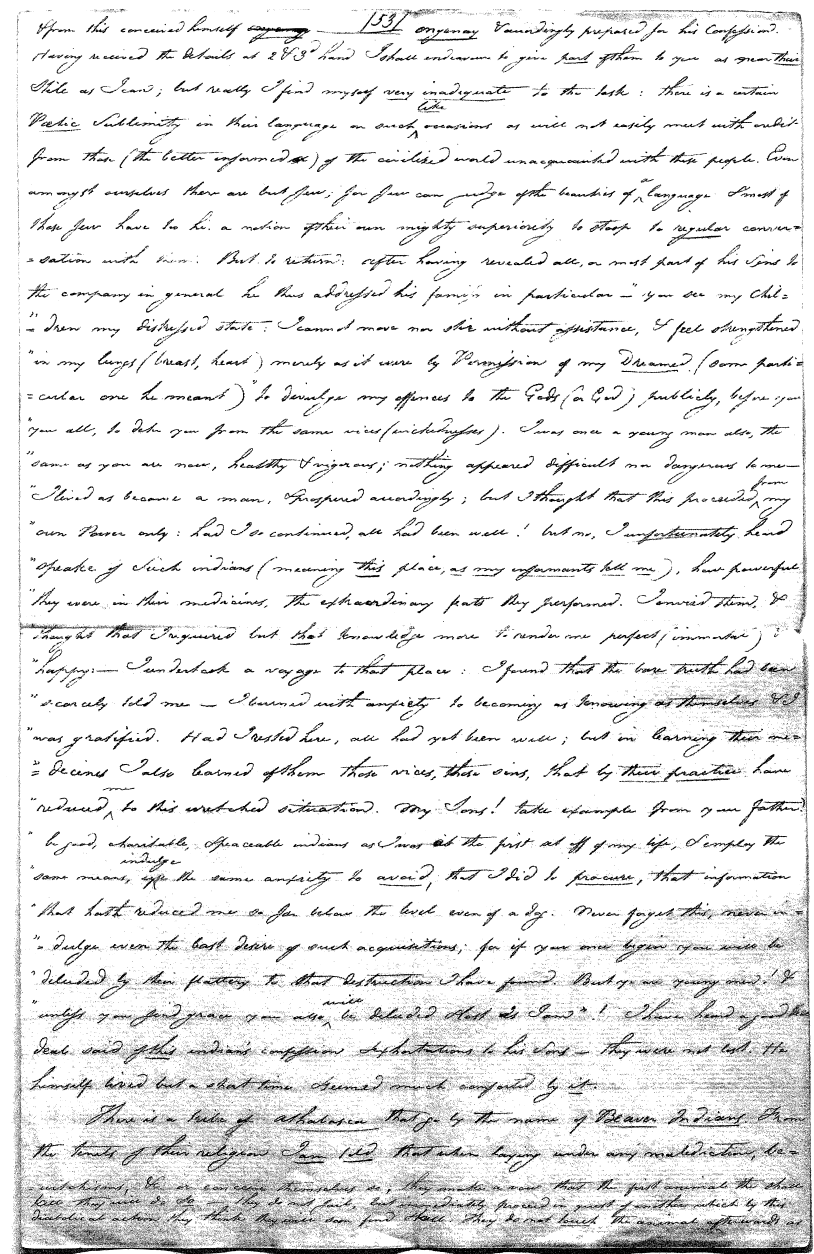 |53|
& from this conceived himself onyenay & accordingly prepared for his Confession.
Having received the details at 2 & 3d hand I shall endeavour to give part of them to you as near their
Stile as I can; but really I find myself very inadequate to the task: there is a certain
Poetic Sublimity in their language on such like occasions as will not easily meet with credit
from those (the better informed) of the civilized world unacquainted with these people. Even
amongst ourselves there are but few, for few can judge of the beauties of a language & most of
those few have too hi. a notion of their own mighty superiority to stoop to regular conver=
=sation with them. But to return: after having revealed all, or most part of his Sins to
the company in general he thus addressed his family in particular — "you see my Chil=
"=dren my distressed state: I cannot move nor stir without assistance, & feel strengthened
"in my lungs (breast, heart) merely as it were by Permission of my Dreamed (some parti=
=cular one he meant) "to divulge my offences to the Gods (or God) publicly, before you
"you all, to deter you from the same vices (wickednesses). I was once a young man also, the
"same as you are now, healthy & vigorous; nothing appeared difficult nor dangerous to me—
"I lived as became a man, & prospered accordingly; but I thought that this proceeded from my
"own Power only: had I so continued, all had been well! but no, I unfortunately heard
"speake of Such indians (meaning this place, as my informants tell me), how powerful
"they were in their medicines, the extraordinary feats they performed. I envied them, &
thought that I required but that knowledge more to render me perfect (immortal) &
"happy:— I undertook a voyage to that place: I found that the bare truth had been
"scarcely told me — I burned with anxiety to becoming as knowing as themselves & I
"was gratified. Had I rested here, all had yet been well; but in learning their me=
"=decines I also learned of them those vices, those sins, that by their practice have
"reduced me to this wretched situation. My Sons! take example from your father:
"be good, charitable, & peaceable indians as I was at the first set off of my life, & employ the
"same means, indulge the same anxiety to avoid, that I did to procure, that information
"that hath reduced me so far below the level even of a dog. Never forget this, never in=
"=dulge even the least desire of such acquisitions; for if you once begin you will be
"deluded by their flattery to that destruction I have found. But ye are young men! &
"unless you find grace you also will be deluded & lost as I am"! I have heard a good
deal said of this indian's confession & exhortations to his Sons — they were not lost. He
himself lived but a short time & seemed much comforted by it.
There is a tribe of athabasca that go by the name of Beaver Indians. From
the tenets of their religion I am told that when laying under any malediction, be=
=witchisons, &c or conceive themselves so, they make a vow that the first animal they shall
kill they will do so — they do not fail, but immediately proceed in quest of another which by this
diabolical action they think they will soon find & kill. They do not touch the animal afterwards as